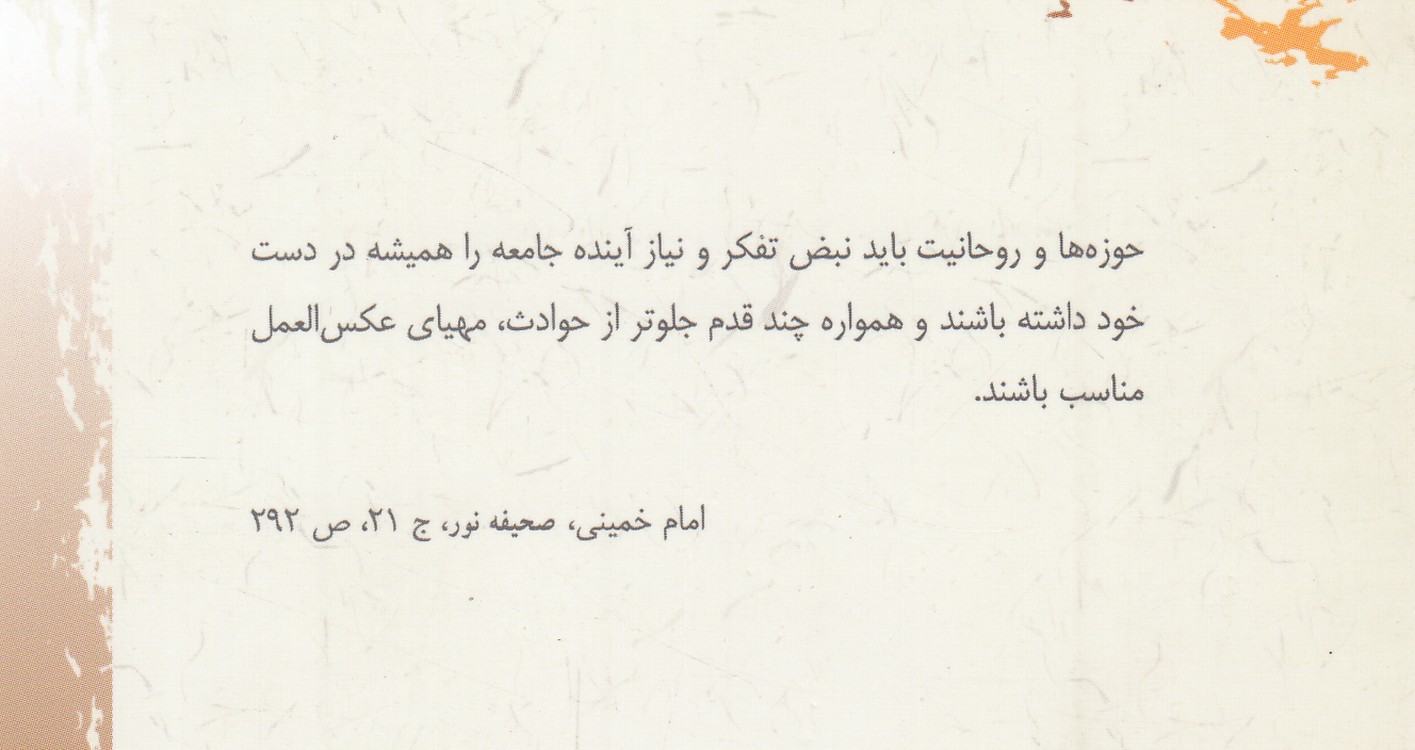 حوزه‌ها و روحانیت باید نبض تفکر و نیاز آینده جامعه را همیشه در دست
خود داشته باشند و همواره چند قدم جلوتر از حوادث، مهیای عکس‌العمل
مناسب باشند.
امام خمینی، صحیفه نور، ج ۲۱، ص ۲۹۲